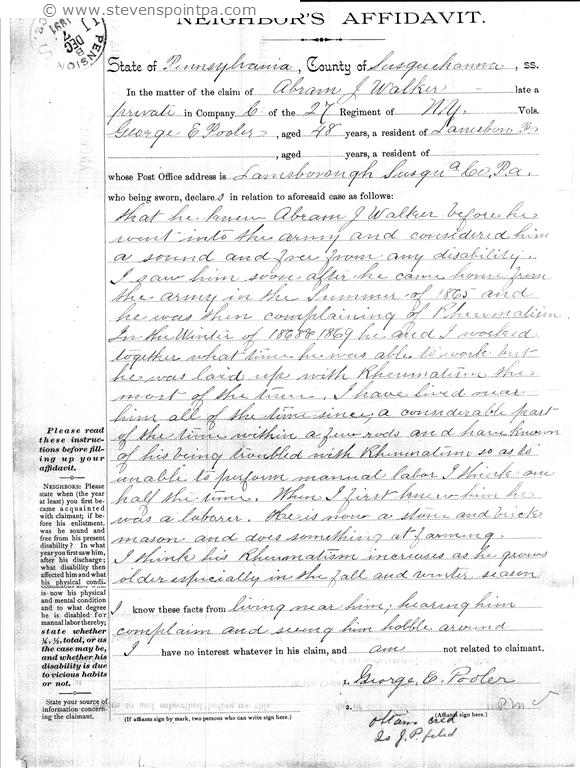 ©www.stevenspointpa.com
NEIGHBOR'S AFFIDAVIT.
PENSION
DEC
7
1891
State of Pennsylvania, County of Susquehanna, ss.
In the matter of the claim of Abram J Walker late a
private in Company C of the 27 Regiment of N.Y. Vols.
George E Pooler, aged 48 years, a resident of Lanesboro Pa
, aged years, a resident of
whose Post Office address is Lanesborough Susqua Co. Pa.
who being sworn, declares in relation to aforesaid case as follows:
that he knew Abram J Walker before he
went into the army and considered him
a sound and free from any disability.
I saw him soon after he came home from
the army in the Summer of 1865 and
he was then complaining of Rheumatism.
In the Winter of 1868 & 1869 he and I worked
together what time he was able to work but
he was laid up with Rheumatism the
most of the time. I have lived near
him all of the time since, a considerable part
of the time within a few rods and have known
of his being troubled with Rheumatism so as to
unable to perform manual labor I think one
half the time. When I first knew him he
was a laborer. He is now a stone and brick
mason and does something at farming.
I think his Rheumatism increases as he grows
older especially in the fall and winter season
I know these facts from living near him; hearing him
complaim and seeing him hobble around
I have no interest whatever in his claim, and am not related to claimant.
1. George. E. Pooler
2.
(If affiants sign by mark, two persons who can write sign here.)
(Affiants sign here.)
J.P. filed
Please read
these instruc-
tions before fill-
ing up your
affidavit.
NEIGHBORS: Please
state when (the year
at least) you first be-
came acquainted
with claimant; if be-
fore his enlistment,
was he sound and
free from his present
disability? In what
year you first saw him,
after his discharge;
what disability then
affected him and what
his physical condi-
is now his physical
and mental condition
and to what degree
he is disabled for
manual labor thereby;
state whether
¼, ½, total, or as
the case may be,
and whether his
disability is due
to vicious habits
or not.
State your source of
information concern-
ing the claimant.